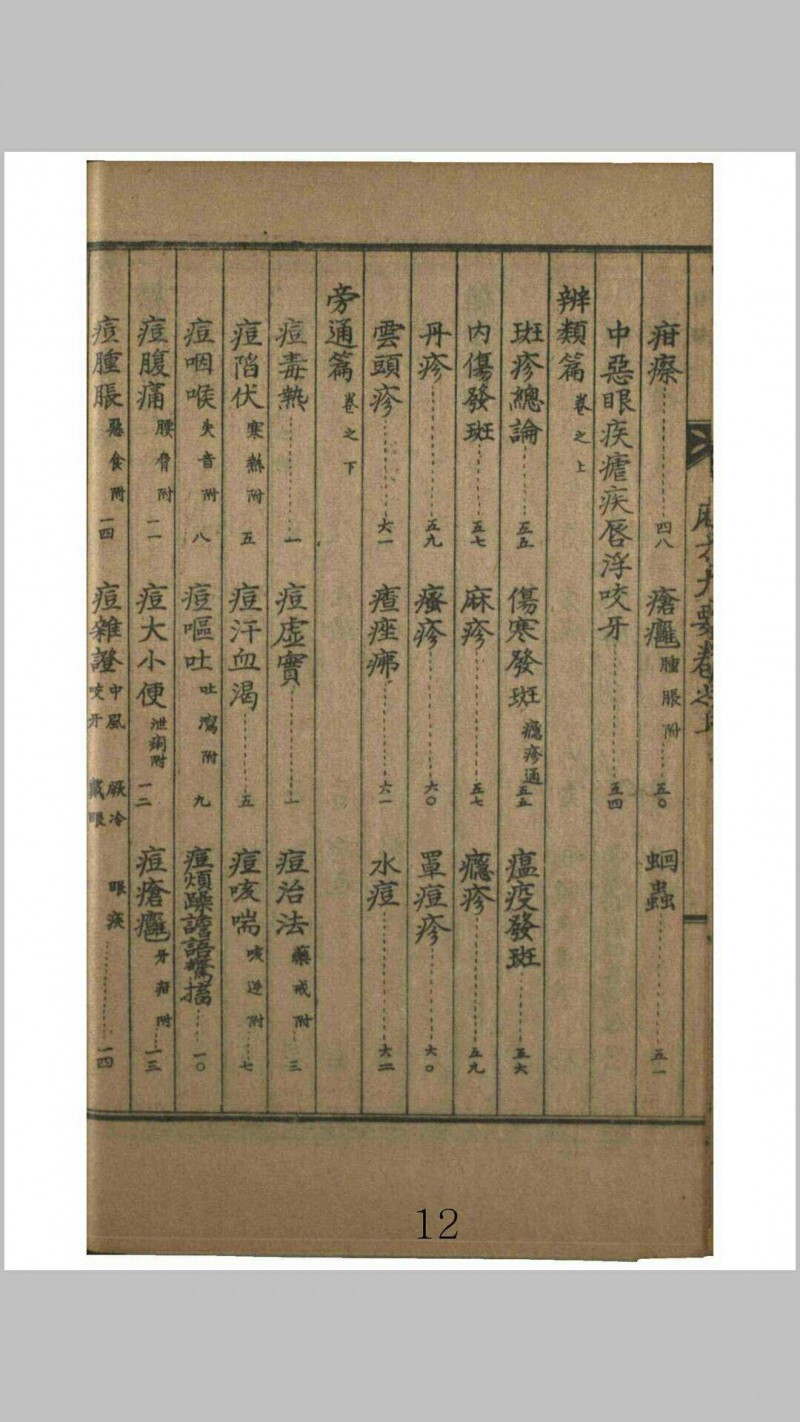 疳瘵 四八 瘡癰 腫脹附 五〇 蛔蟲 五一
中惡眼疾瘧疾唇浮咬牙 五四
辨類篇 卷之上
斑疹總論 五五 傷寒發斑 癮疹通 五五 瘟疫發斑 五六
內傷發斑 五七 麻疹 五七 癮疹 五九
丹疹 五九 瘙疹 六〇 罩痘疹 六〇
雲頭疹 六一 痤疿 六一 水痘 六二
旁通篇 卷之下
痘毒熱 一 痘虛實 一 痘治法 藥戒附 三
痘陷伏 寒熱附 五 痘汗血渴 五 痘咳喘 咳逆附 七
痘咽喉 失音附 八 痘嘔吐 吐瀉附 九 痘煩躁譫語驚搐 一〇
痘腹痛 腰脅附 一一 痘大小便 泄痢附 一二 痘瘡癰 牙疳附 一三
痘腫脹 惡食附 一四 痘雜證 中風 咬牙 厥冷 戴眼 眼疾 一四
12